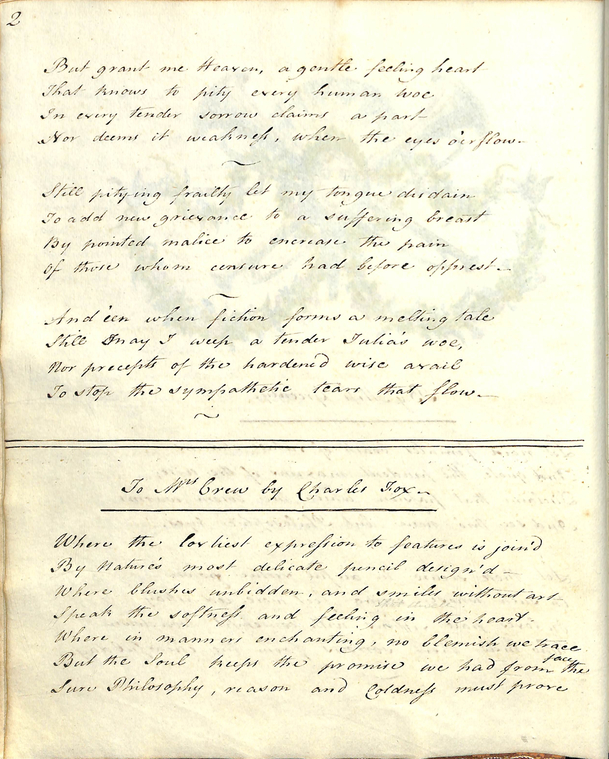 2
But grant me Heaven, a gentle feeling heart
That knows to pity every human woe
In every tender sorrow claims a part
Nor deems it weakness, when the eyes o'erflow.
Still pitying frailty let my tongue disdain
To add new grievance to a suffering breast
By pointed malice to encrease the pain
Of those whom censure had before opprest.
And e'en when fiction forms a melting tale
Still may I weep a tender Julia's woe,
Nor precepts of the harden'd wise avail
To stop the sympathetic tears that flow.
To Mrs Crew by Charles Fox.
Where the loveliest expression to features is join'd
By Nature's most delicate pencil design'd
Where blushes unbidden, and smiles without art
Speak the softness and feeling in the heart.
Where in manners enchanting, no blemish we trace
But the Soul keeps the promise we had from the face
Sure Philosophy, reason and Coldness must prove